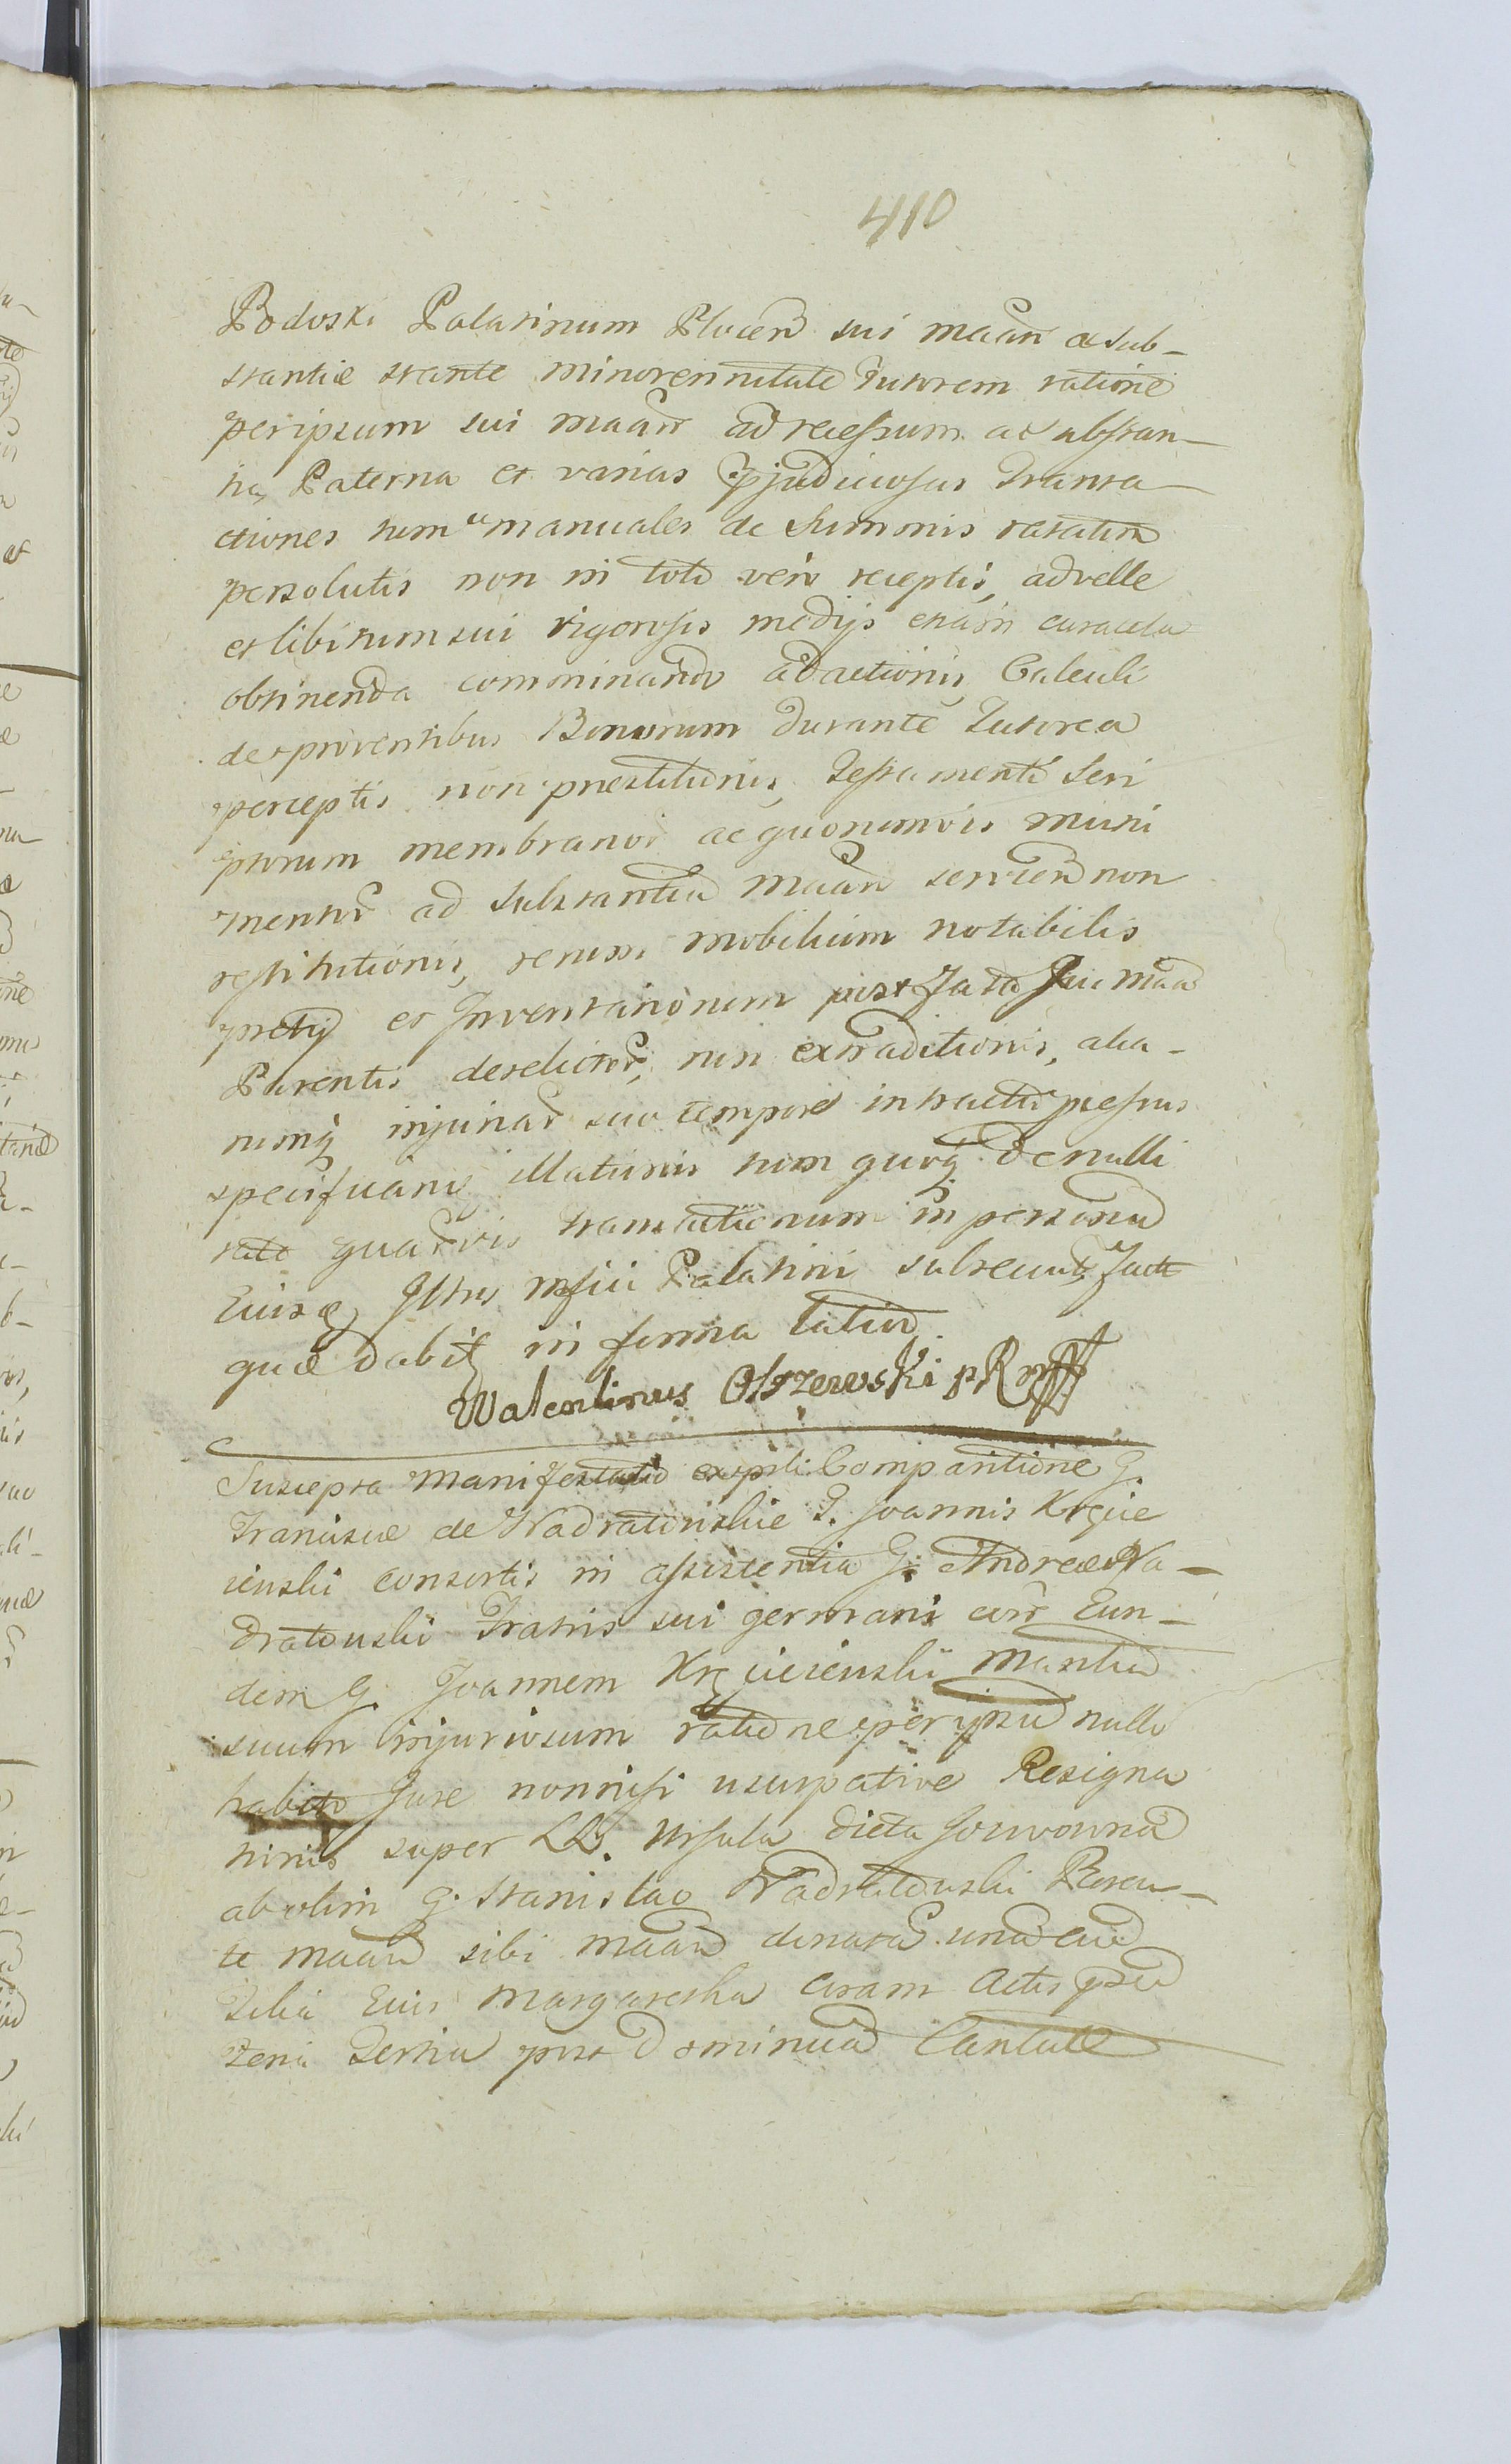 410
Podoski Palatinum Plocen sui maan et sub-
stantiæ stante minorennitate Tutorem ratione
per ipsum sui maan ad recessum a substan-
tia Paterna et varias pjudiciosas Transa-
ctiones tum manuales de Summis ratatim
persolutis non in toto vero receptis, ad velle
et libitum sui rigorosis medijs etiam
obtinenda comminando adactionis, Calculi
de proventibus Bonorum durante Tutorea
perceptis non prestitionis, Testamenti Scri
ptorum membranor ac quorumvis muni
mentor ad substantia maan servien non
restitutionis, rerum mobilium notabilis
pretij et Inventariorum post fata sui maan
Parentis derelictor, non extraditionis, alia-
rumq injuriar suo tempore in tractu pressius
specificand illationis tum quoq de nulli
tate quarvis transactionum in personam
Eiusd Illtris mfici Palatini subsecut facti
quæ dabit in forma latiori
Valentinus Olszewski pRmpp
Suscepta Manifestatio ex psnli Compantione G.
Franciscæ de Nadratowskie G. Joannis Krzcie
cienski consortis in assistentia G. Andreæ Na-
dratowski Fratris sui germani con Eun-
dem G. Joannem Krzciecienski Maritum
suum injuriosum ratione per ipsum nullo
habito Jure nonnisi usurpative Resigna
tionis super LL. Ursula dicta
ab olim G. Stanislao Nadratowski Paren-
te maan sibi maan donata una cum
Filia Eius Margaretha coram Actis psen
Feria Tertia post Dominica Cantate